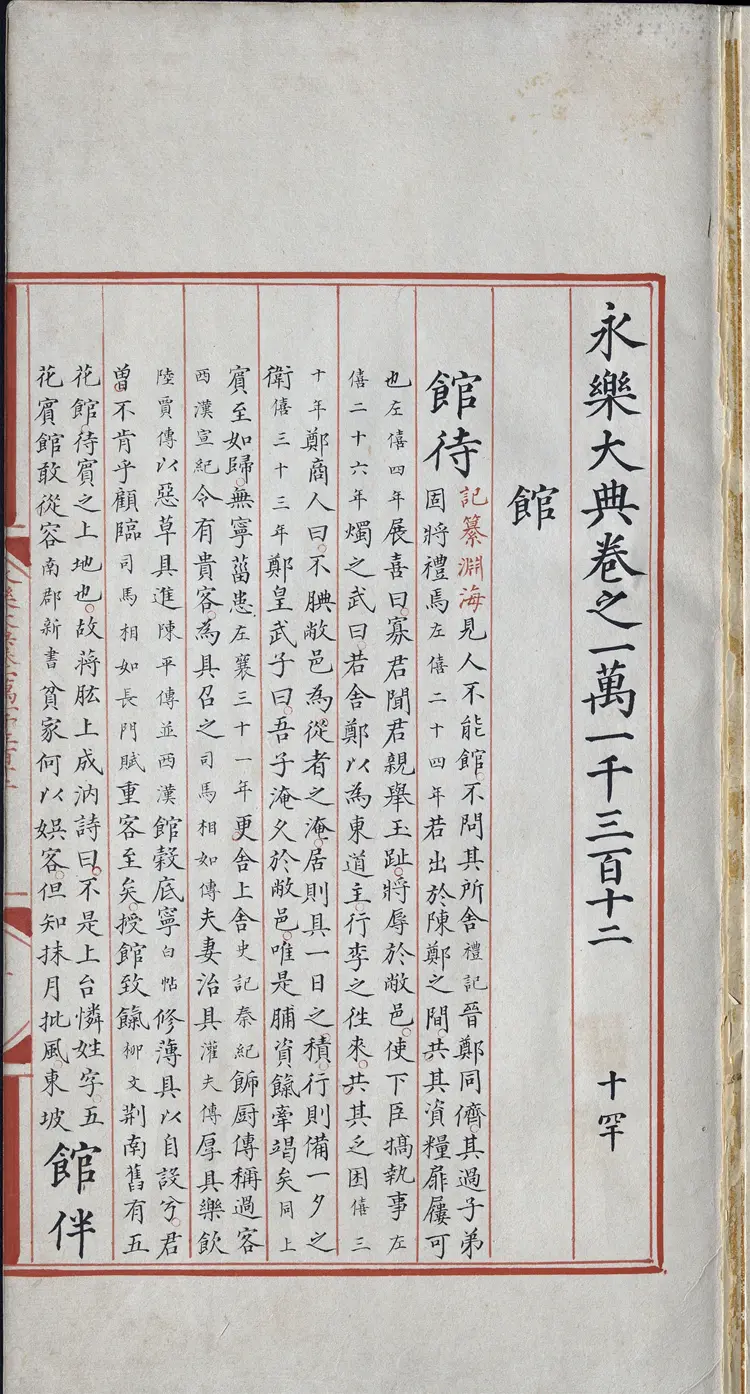 永樂大典卷之一萬一千三百十二 十罕
館
館待
記纂淵海見人不能館。不問其所舍禮記晉鄭同儕。其過子弟
固將禮焉左僖二十四年若出於陳鄭之間。共其資糧屝屨可
也左僖四年展喜曰。寡君聞君親舉玉趾。將辱於敝邑。使下臣犒執事左
僖二十六年燭之武曰。若舍鄭以為東道主。行李之徃來。共其乏困僖三
十年鄭商人曰。不腆敝邑為從者之淹。居則具一日之積。行則備一夕之
衛僖三十三年鄭皇武子曰。吾子淹久於敝邑。唯是脯資餼牽竭矣同上
賓至如歸。無寧菑患左襄三十一年更舍上舍史記秦紀飾厨傳稱過客
西漢宣紀令有貴客。為具召之司馬相如傳夫妻治具灌夫傳厚具樂飲
陸賈傳以惡草具進陳平傳並西漢館穀底寧白帖修薄具以自設兮。君
曽不肯乎顧臨司馬相如長門賦重客至矣。授館致餼柳文荆南舊有五
花館。待賓之上地也。故蔣肱上成汭詩曰。不是上台憐姓字。五
花賓館敢從容南郡新書貧家何以娯客。但知抹月批風。東坡
館伴